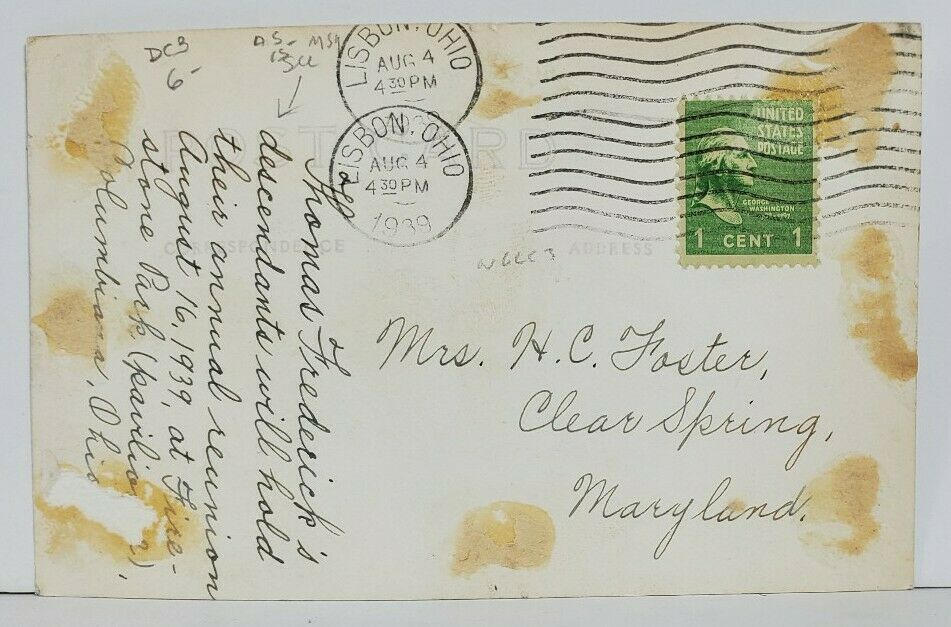 DC3
6-
LISBON, OHIO
AUG 4
4 30 PM
LISBON, OHIO
AUG 4
4 30 PM
1939
UNITED
STATES
POSTAGE
GEORGE
WASHINGTON
1 CENT 1
POST CARD
CORRESPONDENCE
ADDRESS
Thomas Frederick's
descendants will hold
their annual reunion
August 16, 1939, at Fire-
stone Park (pavilion 2),
Columbiana, Ohio
Mrs. H. C. Foster,
Clear Spring,
Maryland.